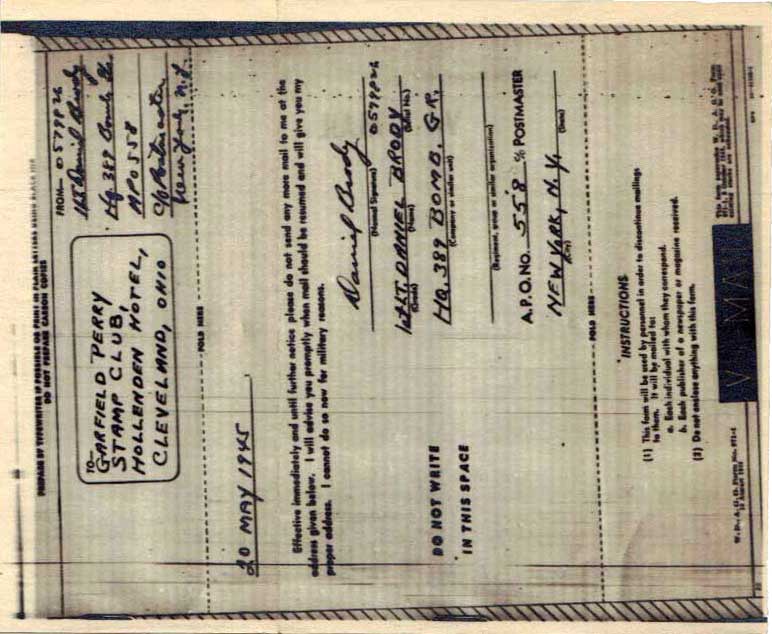 PREPARE BY TYPEWRITER IF POSSIBLE OR PRINT IN PLAIN LETTERS USING BLACK INK
DO NOT PREPARE CARBON COPIES
TO—
GARFIELD PERRY
STAMP CLUB,
HOLLENDEN HOTEL,
CLEVELAND, OHIO
FROM— O579826
1st Lt Daniel Brody
Hq. 389 Bomb Gr.
APO 558
c/o Postmaster
New York, N.Y.
FOLD HERE
20 MAY 1945
Effective immediately and until further notice please do not send any more mail to me at the
address given below. I will advise you promptly when mail should be resumed and will give you my
proper address. I cannot do so now for military reasons.
Daniel Brody
(Normal Signature)
DO NOT WRITE
IN THIS SPACE
1st LT. DANIEL BRODY O579826
(Grade) (Name) (Serial No.)
HQ. 389 BOMB. GR.
(Company or similar unit)
(Regiment, group or similar organization)
A.P.O. NO. 558 % POSTMASTER
NEW YORK, N.Y.
(City) (State)
FOLD HERE
INSTRUCTIONS
(1) This form will be used by personnel in order to discontinue mailings
to them. It will be mailed to:
a. Each individual with whom they correspond.
b. Each publisher of a newspaper or magazine received.
(2) Do not enclose anything with this form.
W. D., A. G. O. Form No.
V-MAIL
This form supersedes W. D., A. G. O. Form